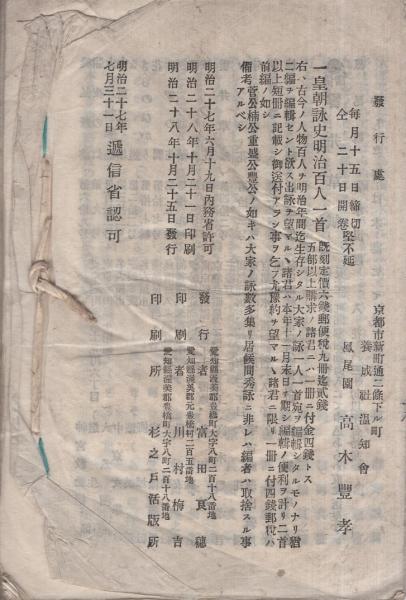 發行處
京都市新町通二條下ル町
養成社溫知會
鳳尾園 高木豐孝
每月十五日締切
仝二十日開卷堅不延
一皇朝詠史明治百人一首 既刻定價六錢郵便稅九冊迄貳錢
五部以上購求ノ諸君ニハ一冊ニ付金四錢トス
右、古今ノ人物百人ヲ明治年間迄生存シタル大家ノ詠一人一首宛ヲ編輯シタルモノナリ猶
二編ヲ編輯セント欲ス出詠ヲ望マル丶諸君ハ本年十一月末日ヲ期シ編輯ノ便利ヲ計リ二首
以上短冊ニ記載シ御送付アラン事ヲ乞フ尤豫約ヲ望マル丶諸君ニ限リ一冊ニ付四錢郵稅ハ
前編ノ如シ
備考 菅公楠公重盛公豐公ノ如キハ大家ノ詠數多集リ居候間秀詠ニ非レハ編者ハ取捨スル事
アルベシ
明治二十七年六月十九日內務省許可
明治二十八年十月二十一日印刷
明治二十八年十月二十五日發行
愛知縣渥美郡豊橋町大字八町二百十八番地
發行者 富田良穗
愛知縣渥美郡元豊橋村二百五番地
印刷者 川村梅吉
愛知縣渥美郡豊橋町大字八町二百十八番地
印刷所 杉之戶活版所
明治二十七年
七月三十一日 遞信省認可